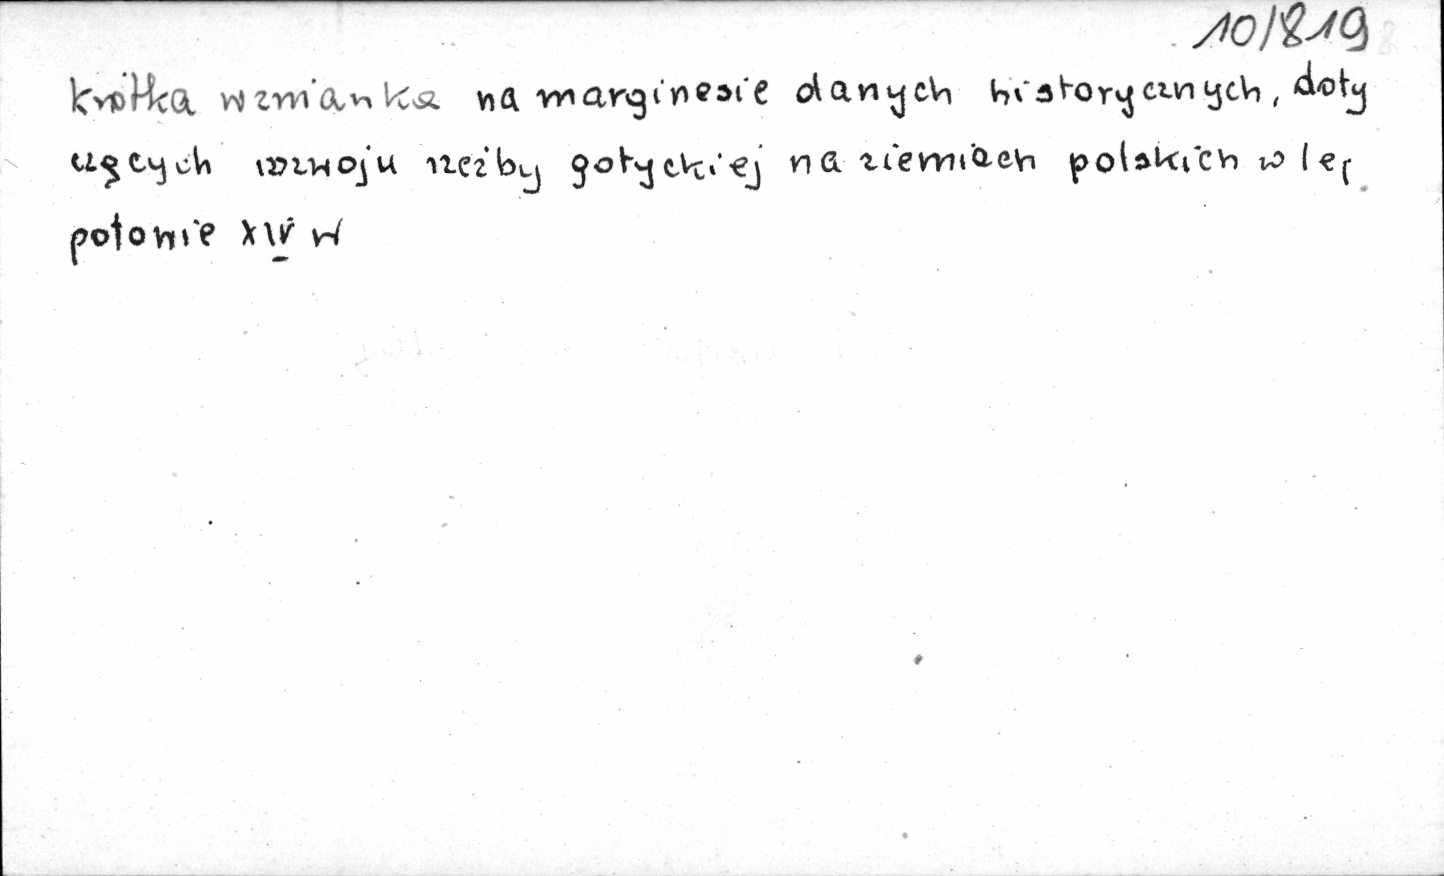 10/819
krótka wzmianka na marginesie danych historycznych, doty
czących rozwoju rzeźby gotyckiej na ziemiach polskich w Iej
połowie XIV w